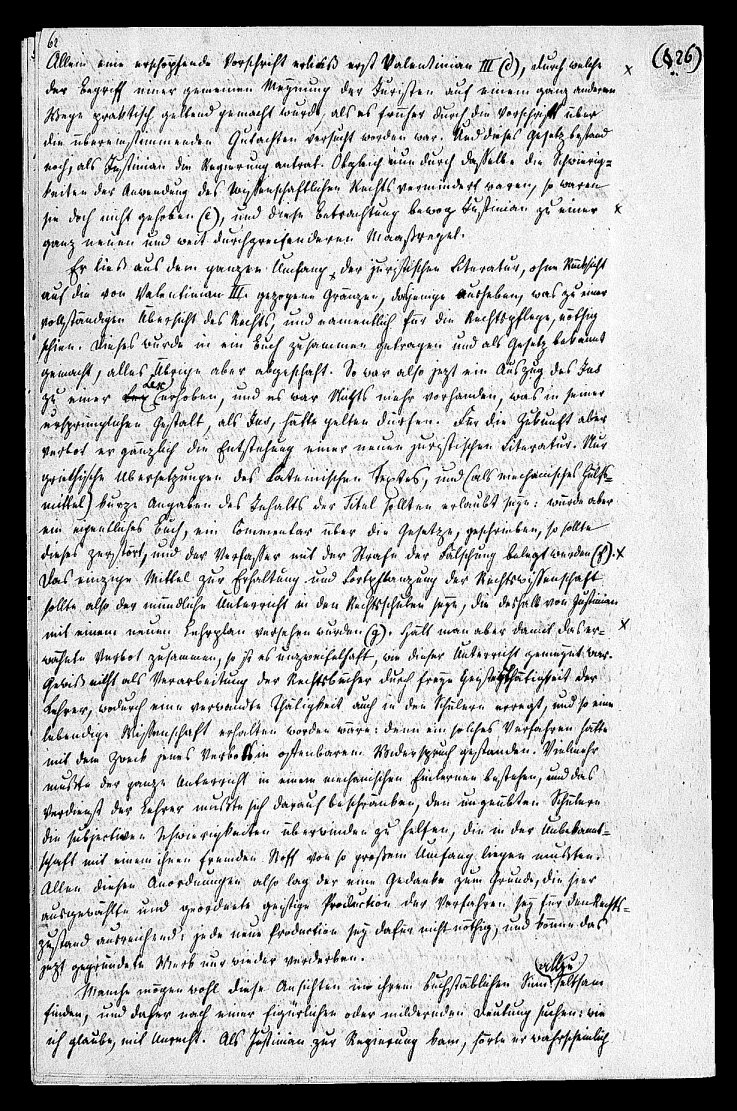 62
(§. 26)
Allein eine erschöpfende Vorschrift erließ erst Valentinian III (d), durch welche
der Begriff einer gemeinen Meynung der Juristen auf einem ganz anderen
Wege praktisch geltend gemacht wurde, als es früher durch die Vorschrift über
die übereinstimmenden Gutachten versucht worden war. Und dieses Gesetz bestand
noch, als Justinian die Regierung antrat. Obgleich nun durch dasselbe die Schwierig-
keiten der Anwendung des wissenschaftlichen Rechts vermindert waren, so waren
sie doch nicht gehoben (e), und diese Betrachtung bewog Justinian zu einer
ganz neuen und weit durchgreifenderen Maaßregel.
Er ließ aus dem ganzen Umfang der juristischen Literatur, ohne Rücksicht
auf die von Valentinian III. gezogene Gränzen, dasjenige ausheben, was zu einer
vollständigen Übersicht des Rechts, und namentlich für die Rechtspflege, nöthig
schien. Dieses wurde in ein Buch zusammen getragen und als Gesetz bekannt
gemacht, alles Übrige aber abgeschaft. So war also jezt ein Auszug des Jus
zu einer Lex erhoben, und es war Nichts mehr vorhanden, was in seiner
ursprünglichen Gestalt, als Jus, hätte gelten dürfen. Für die Zukunft aber
verbot er gänzlich die Entstehung einer neuen juristischen Literatur. Nur
griechische Übersetzungen des Lateinischen Textes, und (als mechanisches Hülfs-
mittel) kurze Angaben des Inhalts der Titel sollten erlaubt seyn: würde aber
ein eigentliches Buch, ein Commentar über die Gesetze, geschrieben, so sollte
dieses zerstört, und der Verfasser mit der Strafe der Fälschung belegt werden (f).
Das einzige Mittel zur Erhaltung und Fortpflanzung der Rechtswissenschaft
sollte also der mündliche Unterricht in den Rechtsschulen seyn, die deshalb von Justinian
mit einem neuen Lehrplan versehen wurden (g). Hält man aber damit das er-
wähnte Verbot zusammen, so ist es unzweifelhaft, wie dieser Unterricht gemeynt war.
Gewiß nicht als Verarbeitung der Rechtsbücher durch freye Geistesthätigkeit der
Lehrer, wodurch eine verwandte Thätigkeit auch in den Schülern erregt, und so eine
lebendige Wissenschaft erhalten worden wäre: denn ein solches Verfahren hätte
mit dem Zweck jenes Verbots in offenbarem Widerspruch gestanden. Vielmehr
mußte der ganze Unterricht in einem mechanischen Einlernen bestehen, und das
Verdienst der Lehrer mußte sich darauf beschränken, den ungeübten Schülern
die subjectiven Schwierigkeiten überwinden zu helfen, die in der Unbekannt-
schaft mit einem ihnen fremden Stoff von so großem Umfang liegen mußten.
Allen diesen Anordnungen also lag der eine Gedanke zum Grunde, die hier
ausgewählte und geordnete geistige Production der Vorfahren sey für den Rechts-
zustand ausreichend: jede neue Production sey dafür nicht nöthig, und könne das
jezt gegründete Werk nur wieder verderben.
Manche mögen wohl diese Ansichten in ihrem buchstäblichen Sinne allzu seltsam
finden, und daher nach einer figürlichen oder mildernden Deutung suchen: wie
ich glaube, mit Unrecht. Als Justinian zur Regierung kam, hörte er wahrscheinlich